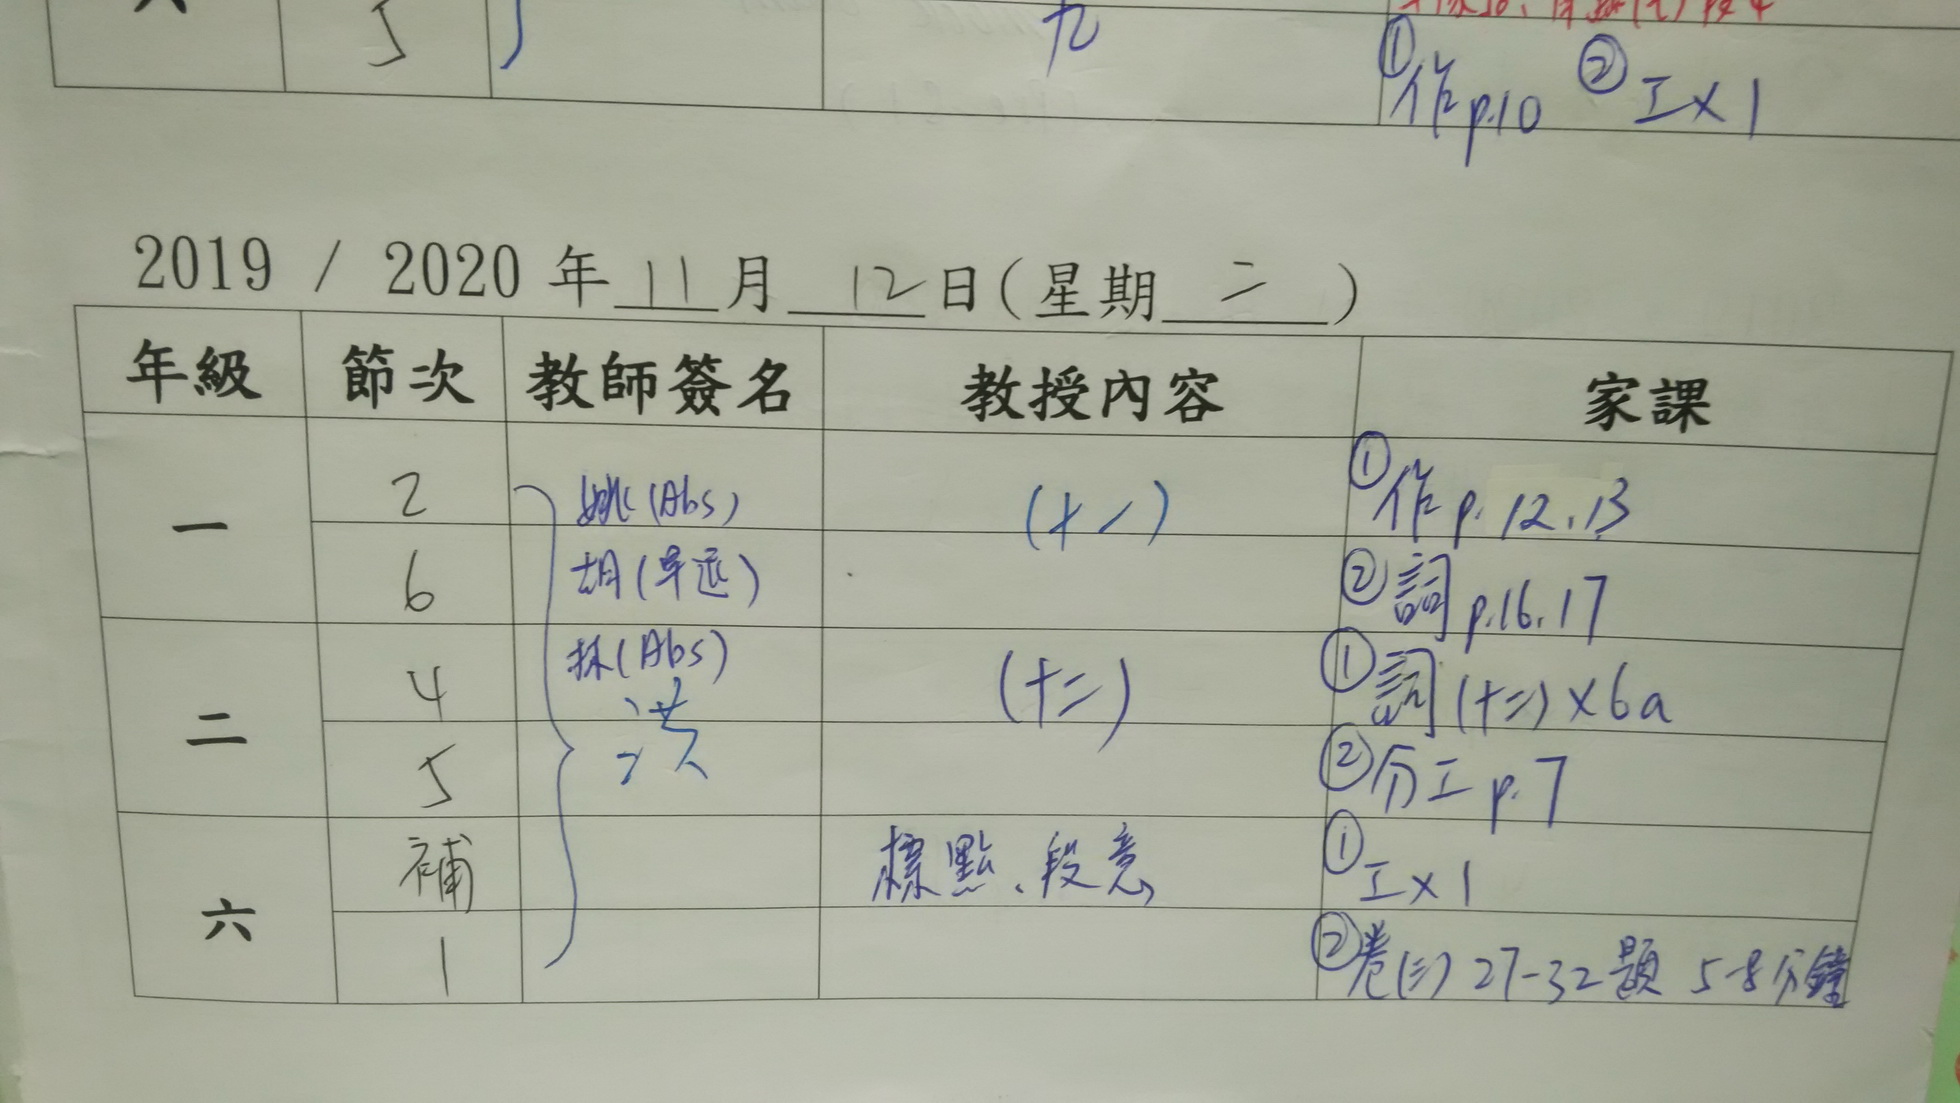 5 九
①作p.10 ②工×1
2019 / 2020 年 11 月 12 日(星期 二 )
年級 節次 教師簽名 教授內容 家課
一 2 姚(Abs) (十一) ①作p.12,13
6 胡(早退) ②詞p.16,17
二 4 林(Abs) (十二) ①詞(十二)×6a
洪
5 ②分工p.7
六 補 標點、段意 ①工×1
1 ②卷(三) 27-32題 5-8分鐘